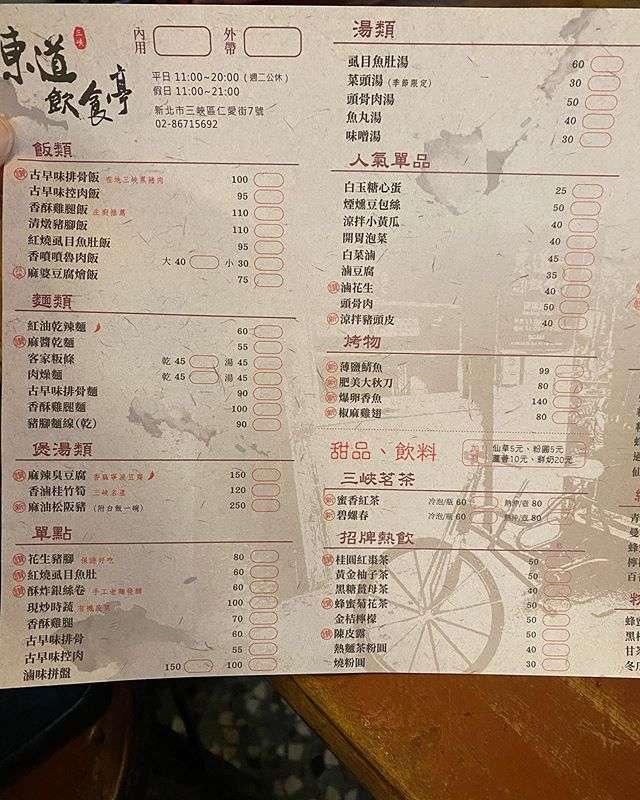 三峽
東道
飲食亭
內用
外帶
平日 11:00~20:00 (週二公休)
假日 11:00~21:00
新北市三峽區仁愛街7號
02-86715692
飯類
古早味排骨飯 在地三峽黑豬肉 100
古早味控肉飯 95
香酥雞腿飯 主廚推薦 110
清燉豬腳飯 110
紅燒虱目魚肚飯 95
香噴噴魯肉飯 大 40 小 30
麻婆豆腐燴飯 75
麵類
紅油乾辣麵 60
麻醬乾麵 55
客家粄條 乾 45 湯 45
肉燥麵 乾 45 湯 45
古早味排骨麵 90
香酥雞腿麵 100
豬腳麵線(乾) 90
煲湯類
麻辣臭豆腐 150
香滷桂竹筍 三峽名產 120
麻油松阪豬 (附白飯一碗) 250
單點
花生豬腳 保證好吃 80
紅燒虱目魚肚 60
酥炸銀絲卷 手工老麵發酵 60
現炒時蔬 有機蔬菜 100
香酥雞腿 70
古早味排骨 60
古早味控肉 55
滷味拼盤 150 100
湯類
虱目魚肚湯 60
菜頭湯 (季節限定) 30
頭骨肉湯 50
魚丸湯 40
味噌湯 30
人氣單品
白玉糖心蛋 25
煙燻豆包絲 50
涼拌小黃瓜 40
開胃泡菜 40
白菜滷 45
滷豆腐 35
滷花生 40
頭骨肉 50
涼拌豬頭皮 40
烤物
薄鹽鯖魚 99
肥美大秋刀 80
爆卵香魚 140
椒麻雞翅 80
甜品、飲料
仙草5元、粉圓5元
蘆薈10元、鮮奶20元
三峽茗茶
蜜香紅茶 冷泡/瓶 60 熱沖/壺 80
碧螺春 冷泡/瓶 60 熱沖/壺 80
招牌熱飲
桂圓紅棗茶 50
黃金柚子茶 50
黑糖薑母茶 40
蜂蜜菊花茶 50
金桔檸檬 50
陳皮露 50
熱麵茶粉圓 40
燒粉圓 30